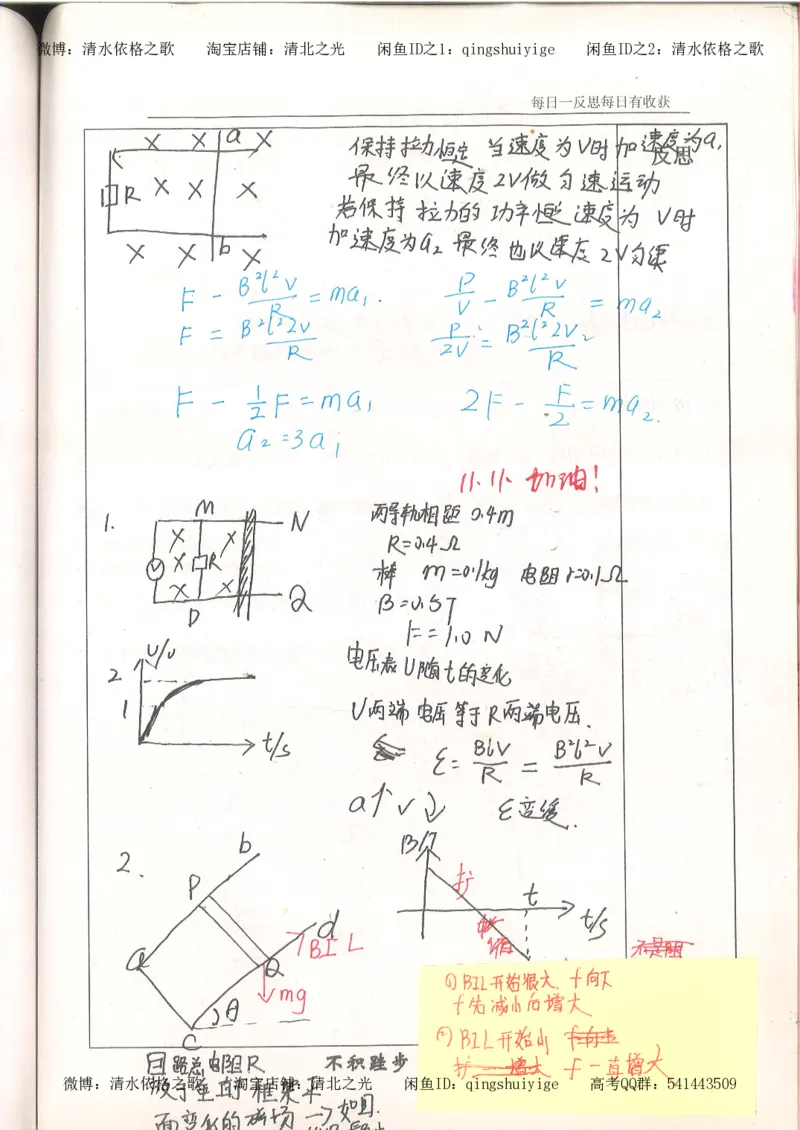 微博：清水依格之歌 淘宝店铺：清北之光 闲鱼ID之1：qingshuiyige 闲鱼ID之2：清水依格之歌
每日一反思每日有收获
反思
a
R
b
保持拉力恒定 当速度为V时加速度为a₁
最终以速度2V做匀速运动
若保持拉力的功率恒定 速度为V时
加速度为a₂ 最终也以速度2V匀速
F - B²l²V/R = ma₁
F = B²l²2V/R
P/V - B²l²V/R = ma₂
P/2V = B²l²2V/R
F - 1/2 F = ma₁
a₂=3a₁
2F - F/2 = ma₂
11.11. 加油!
1.
M
N
V
R
P
Q
两导轨相距 0.4m
R=0.4Ω
棒 m=0.1kg 电阻r=0.1Ω
B=0.5T
F=1.0N
电压表U随t的变化
U/v
2
1
t/s
U两端电压等于R两端电压.
ε= BlV/R = B²l²V/R
a↑ v↓ ε变缓.
2.
b
P
a
d
BIL
Q
mg
θ
C
B/T
扩
t
t/s
缩
①BIL开始很大. f向下
f先减小后增大
②BIL开始小
f一直增大
回路总电阻R
不积跬步
微博：清水依格之歌 淘宝店铺：清北之光 闲鱼ID：qingshuiyige 高考QQ群：541443509
面变化的磁场→如图.